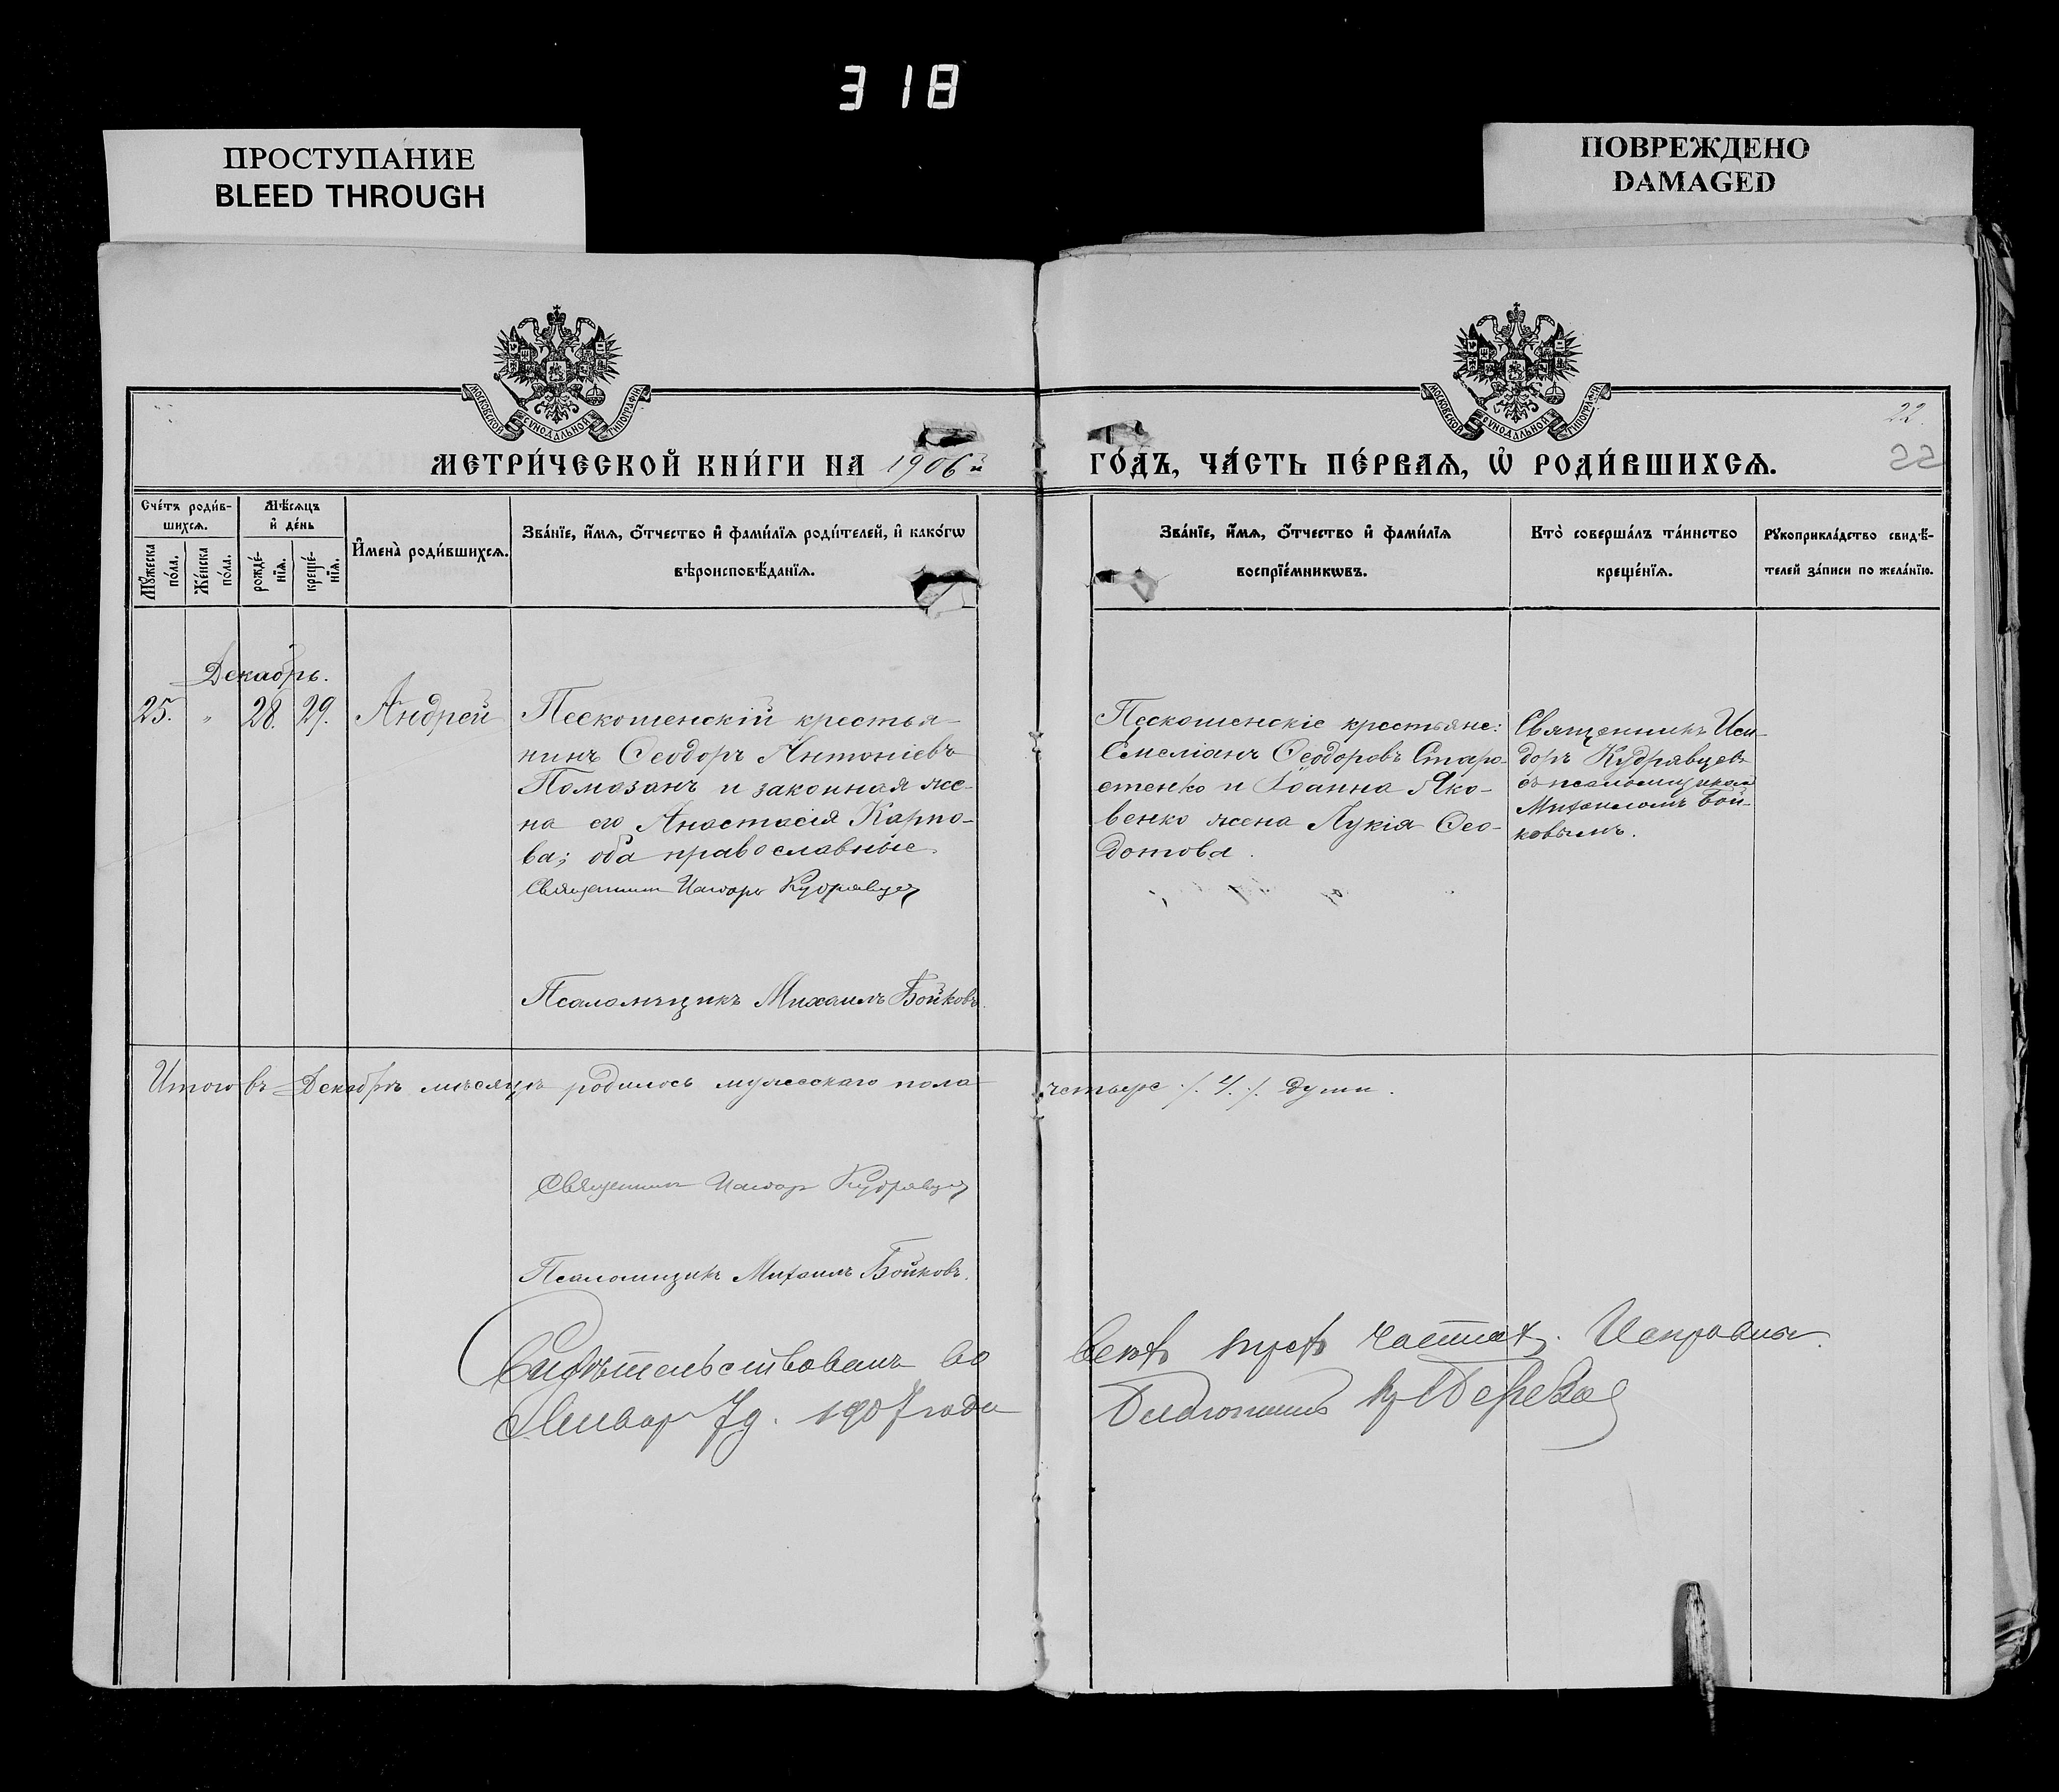 318
ПРОСТУПАНИЕ
BLEED THROUGH
ПОВРЕЖДЕНО
DAMAGED
МОСКОВСКОЙ СѴНОДАЛЬНОЙ ТИПОГРАФІИ
МОСКОВСКОЙ СѴНОДАЛЬНОЙ ТИПОГРАФІИ
22.
22
МЕТРИ́ЧЕСКОЙ КНИ́ГИ НА 1906й ГО́ДЪ, ЧА́СТЬ ПЕ́РВАѦ, Ѡ҆ РОДИ́ВШИХСѦ.
Сче́тъ роди́в-
шихсѧ.
Мѣ́сѧцъ
и҆ де́нь
Мꙋ́жеска
по́ла.
Же́нска
по́ла.
рожде́-
нїѧ.
креще́-
нїѧ.
И҆мена̀ роди́вшихсѧ.
Зва́нїе, и҆́мѧ, ѻ҆́тчество и҆ фами́лїѧ роди́телей, и҆ како́гѡ
вѣроисповѣ́данїѧ.
Зва́нїе, и҆́мѧ, ѻ҆́тчество и҆ фами́лїѧ
воспрїе́мникѡвъ.
Кто̀ соверша́лъ та́инство
креще́нїѧ.
Рꙋкоприкла́дство свидѣ́-
телей за́писи по жела́нїю.
Декабрь.
25. " 28. 29. Андрей
Пескошенскій крестья-
нинъ Ѳеодоръ Антоніевъ
Помазанъ и законная же-
на его Анастасія Карпо-
ва; оба православные.
Священникъ Исидоръ Кудрявцев
Псаломщикъ Михаилъ Бойковъ.
Пескошенскіе крестьяне:
Емеліанъ Ѳеодоровъ Старо-
стенко и Іоанна Яко-
венко жена Лукія Ѳео-
дотова.
Священникъ Иси-
доръ Кудрявцевъ
съ псаломщикомъ
Михаиломъ Бой-
ковымъ.
Итого въ Декабрѣ мѣсяцѣ родилось мужескаго пола четыре /. 4. /. души.
Священникъ Исидоръ Кудрявцев
Псаломщикъ Михаилъ Бойковъ.
Свидѣтельствовалъ во всехъ трехъ частяхъ. Исправны.
Январ 7 д. 1907 года